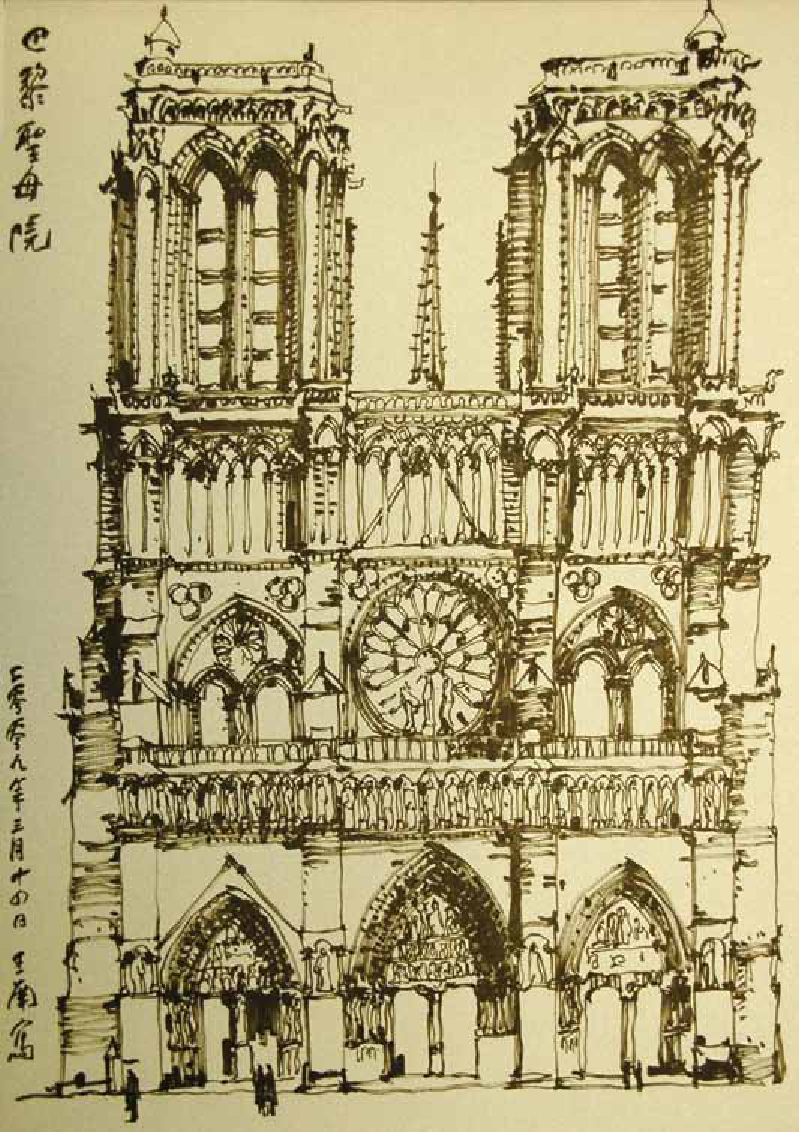 巴黎聖母院
二零零九年三月十四日 王南寫